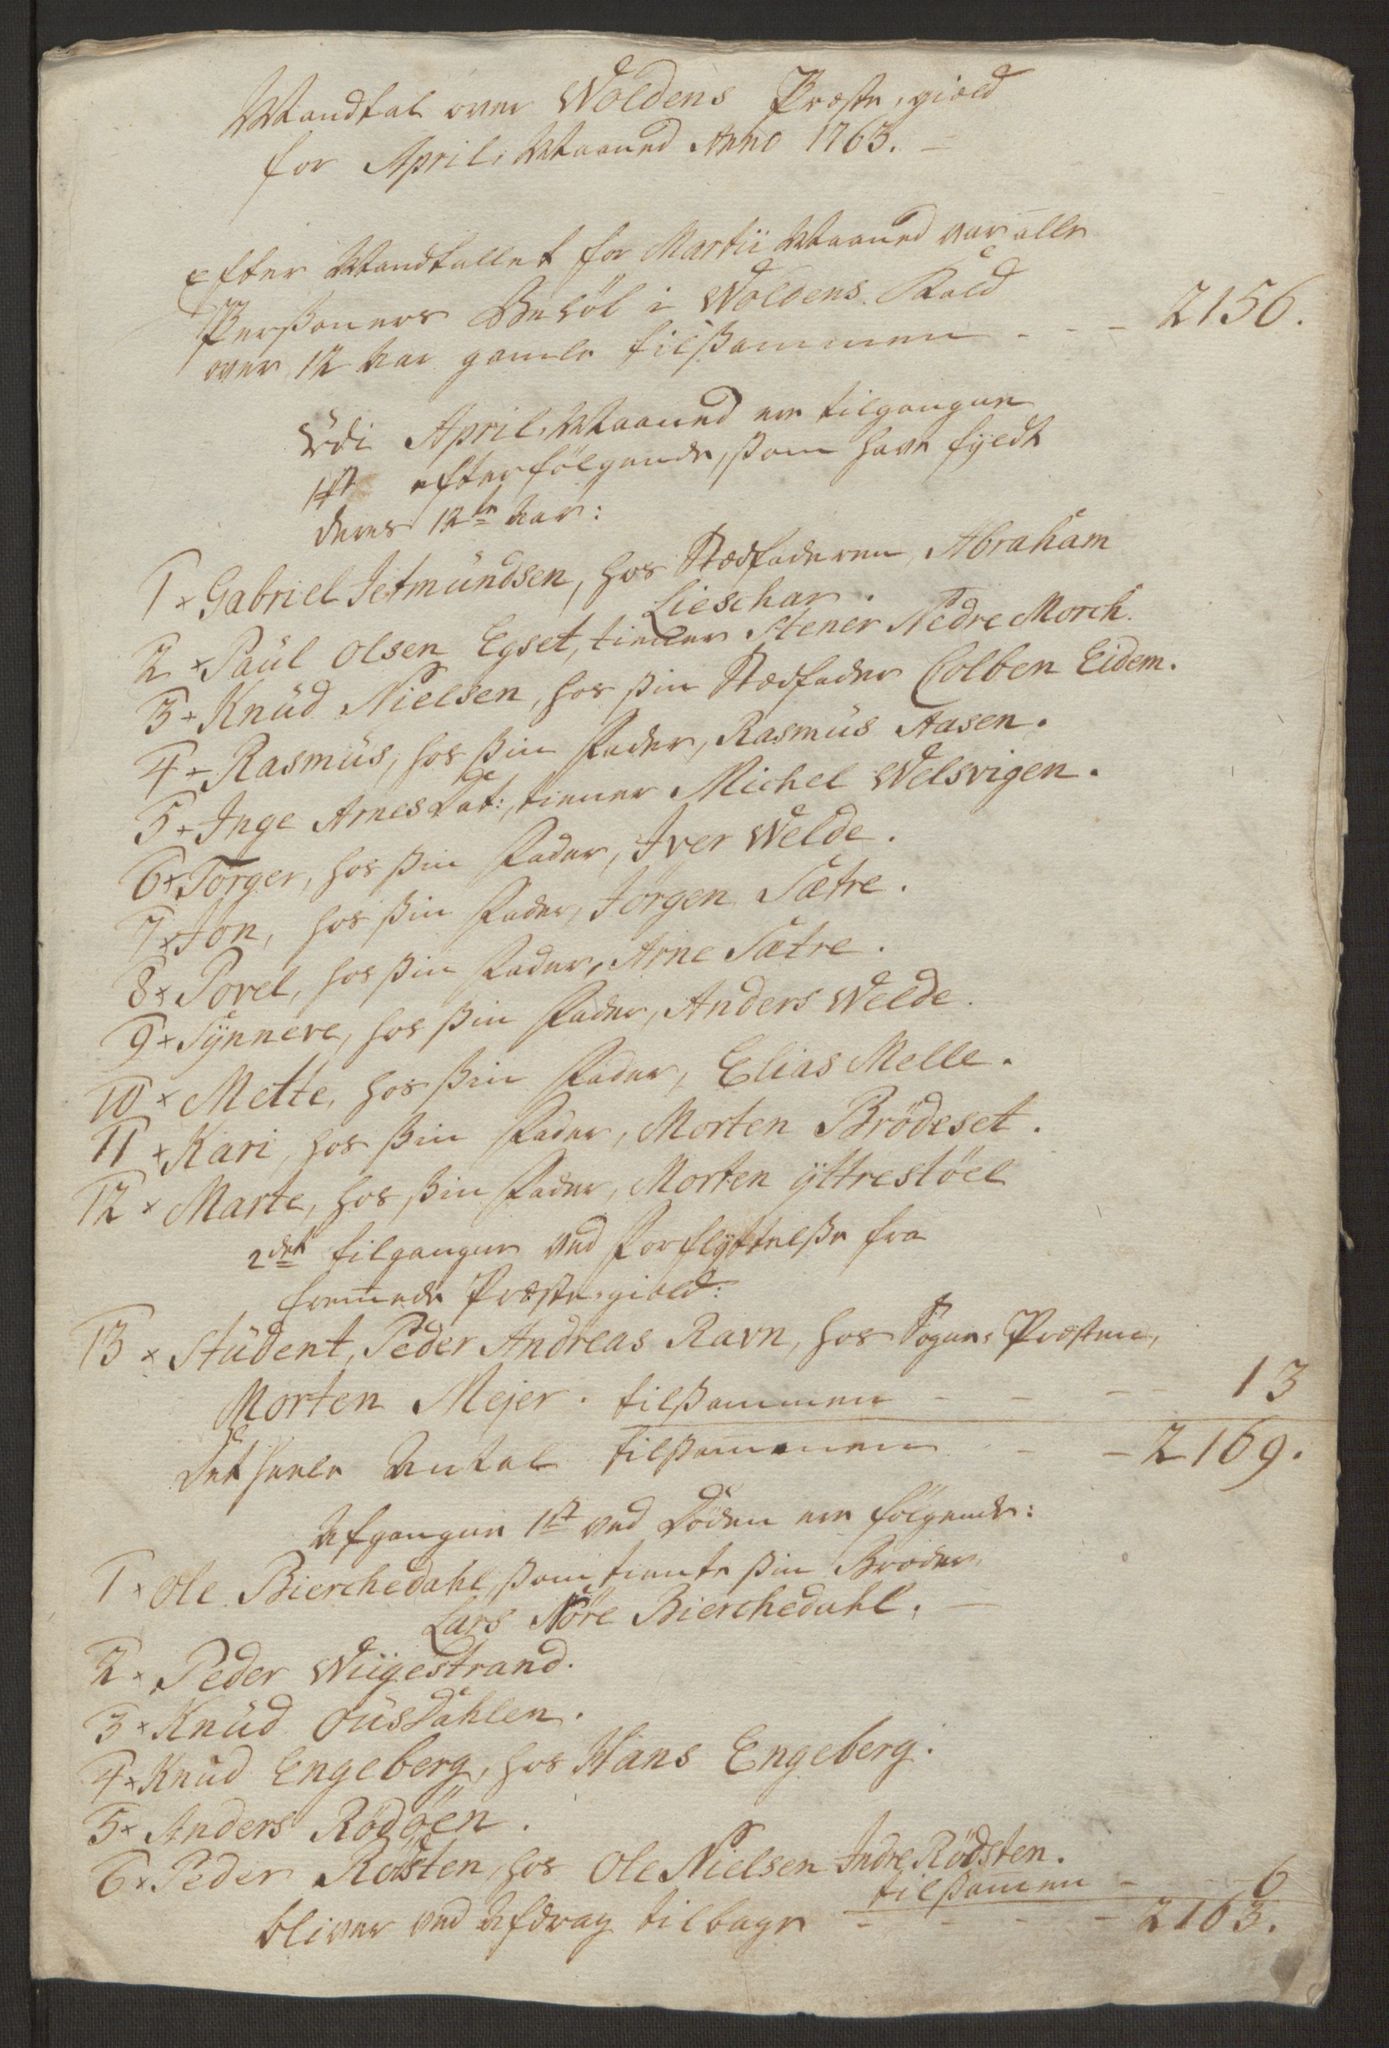 Mandtal over Woldens Præste-gield
for April-Maaned Anno 1763. -
Efter Mandtallet for Martii Maaned var alle
Personers Beløb i Woldens Kald
over 12 Aar gamle tilsammen - - - 2156.
Udi April-Maaned ere tilgangne
1st efterfølgende, som have fyldt
deres 12te Aar:
1 × Gabriel Jetmundsen, hos Stedfaderen, Abraham
Lieschar.
2 × Paul Olsen Egset, tiener Stener Nedre Morch.
3 × Knud Nielsen, hos sin Stedfader Colben Eidem.
4 × Rasmus, hos sin Fader, Rasmus Aasen.
5 × Inge Arnes Dat:, tiener Michel Welsvigen.
6 × Torger, hos sin Fader, Iver Welde.
7 × Jon, hos sin Fader, Jørgen Sætre.
8 × Povel, hos sin Fader, Arne Sætre.
9 × Synneve, hos sin Fader, Anders Welde.
10 × Mette, hos sin Fader, Elias Melle.
11 × Kari, hos sin Fader, Morten Brødeset.
12 × Marte, hos sin Fader, Morten Yttrestøel
2det tilgangne ved Forflyttelse fra
fremede Præste-gield:
13 × Student, Peder Andreas Ravn, hos Sogne-Præsten,
Morten Mejer. tilsammen - - - - 13
Det heele Antal tilsammen - - 2169.
Afgangne 1st ved Døden ere følgende:
1 × Ole Bierchedahl, som tiente sin Broder,
Lars Nøre Bierchedahl. -
2 × Peder Wiigestrand.
3 × Knud Ousdahlen.
4 × Knud Engeberg, hos Hans Engeberg.
5 × Anders Rødøen.
6 × Peder Rødsten, hos Ole Nielsen Indre Rødsten.
tilsamen - - - 6
bliver ved Afdrag tilbage - - - - 2163.